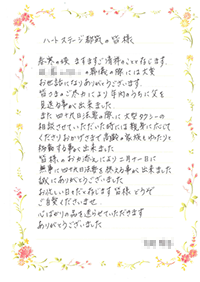 ハートステージ越前の皆様
春寒の候 ますますご清祥のことと存じます。
の葬儀の際には大変
お世話になりありがとうございます。
皆さまのご尽力により年内のうちに父を
見送る事が出来ました。
また四十九日法要の際に大型タクシーの
相談させていただいた時には親身になって
くださりおかげさまで高齢の家族もゆったりと
移動する事が出来ました
皆様のお力添えにより二月十一日に
無事に四十九日法要を終える事が出来ました
誠にありがとうございました
お忙しい日々と存じます 皆様 どうぞ
ご自愛くださいませ
心ばかりの品を送らせていただきます
ありがとうございました